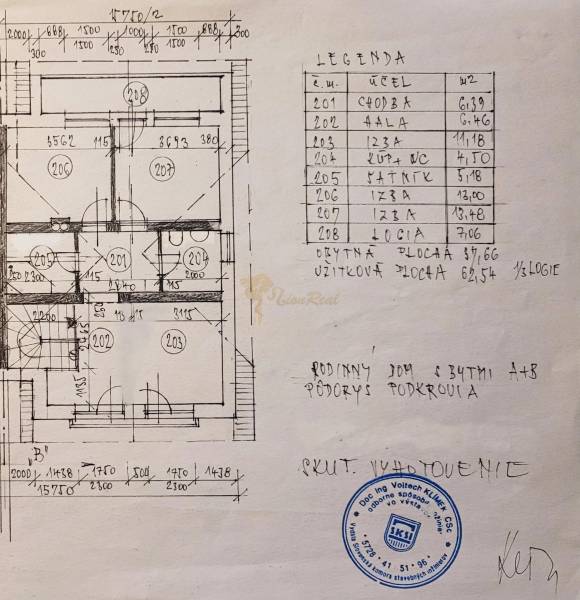 15750/2
2000 888 1500 1000 1500 888
300 1500 250 250 1500 300
208
3562 115 3693 380
206 207
205 201 204
2300 115 2640 115 2000
2200
202 203
3115
1135
"B"
2000 1438 1750 500 1750 1438
15750 2300 2300
LEGENDA
č.m. ÚČEL m2
201 CHODBA 6,39
202 HALA 6,46
203 IZBA 11,18
204 KÚP+WC 4,50
205 ŠATNÍK 5,18
206 IZBA 13,00
207 IZBA 13,48
208 LOGIA 7,06
OBYTNÁ PLOCHA 37,66
UŽITKOVÁ PLOCHA 62,54 1/3 LOGIE
LionReal
RODINNÝ DOM S BYTMI A+B
PÔDORYS PODKROVIA
SKUT. VYHOTOVENIE
Doc Ing Vojtech KLIMEK CSc
odborne spôsobilý
vo výstavbe
SKSI
* 5728 * 41 51 * 96 *
Vydala Slovenská komora stavebných inžinierov